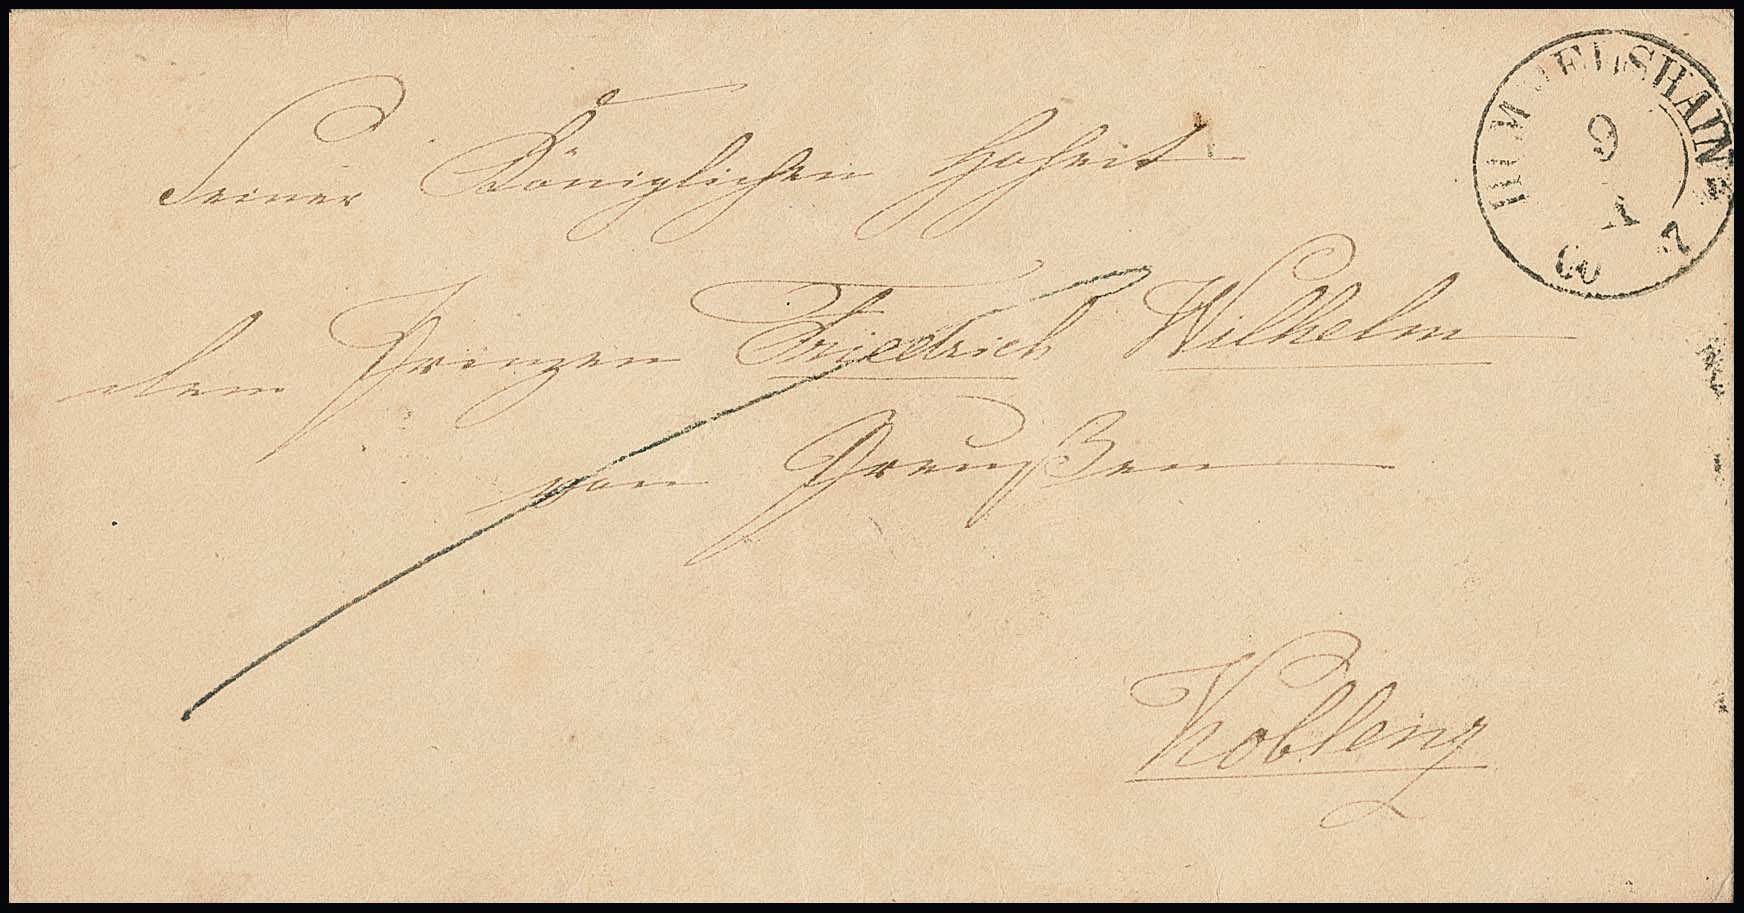 HIMMELSHAIN
9
X
Seiner Königlichen Hoheit
dem Prinzen Friedrich Wilhelm
von Preußen
Koblenz